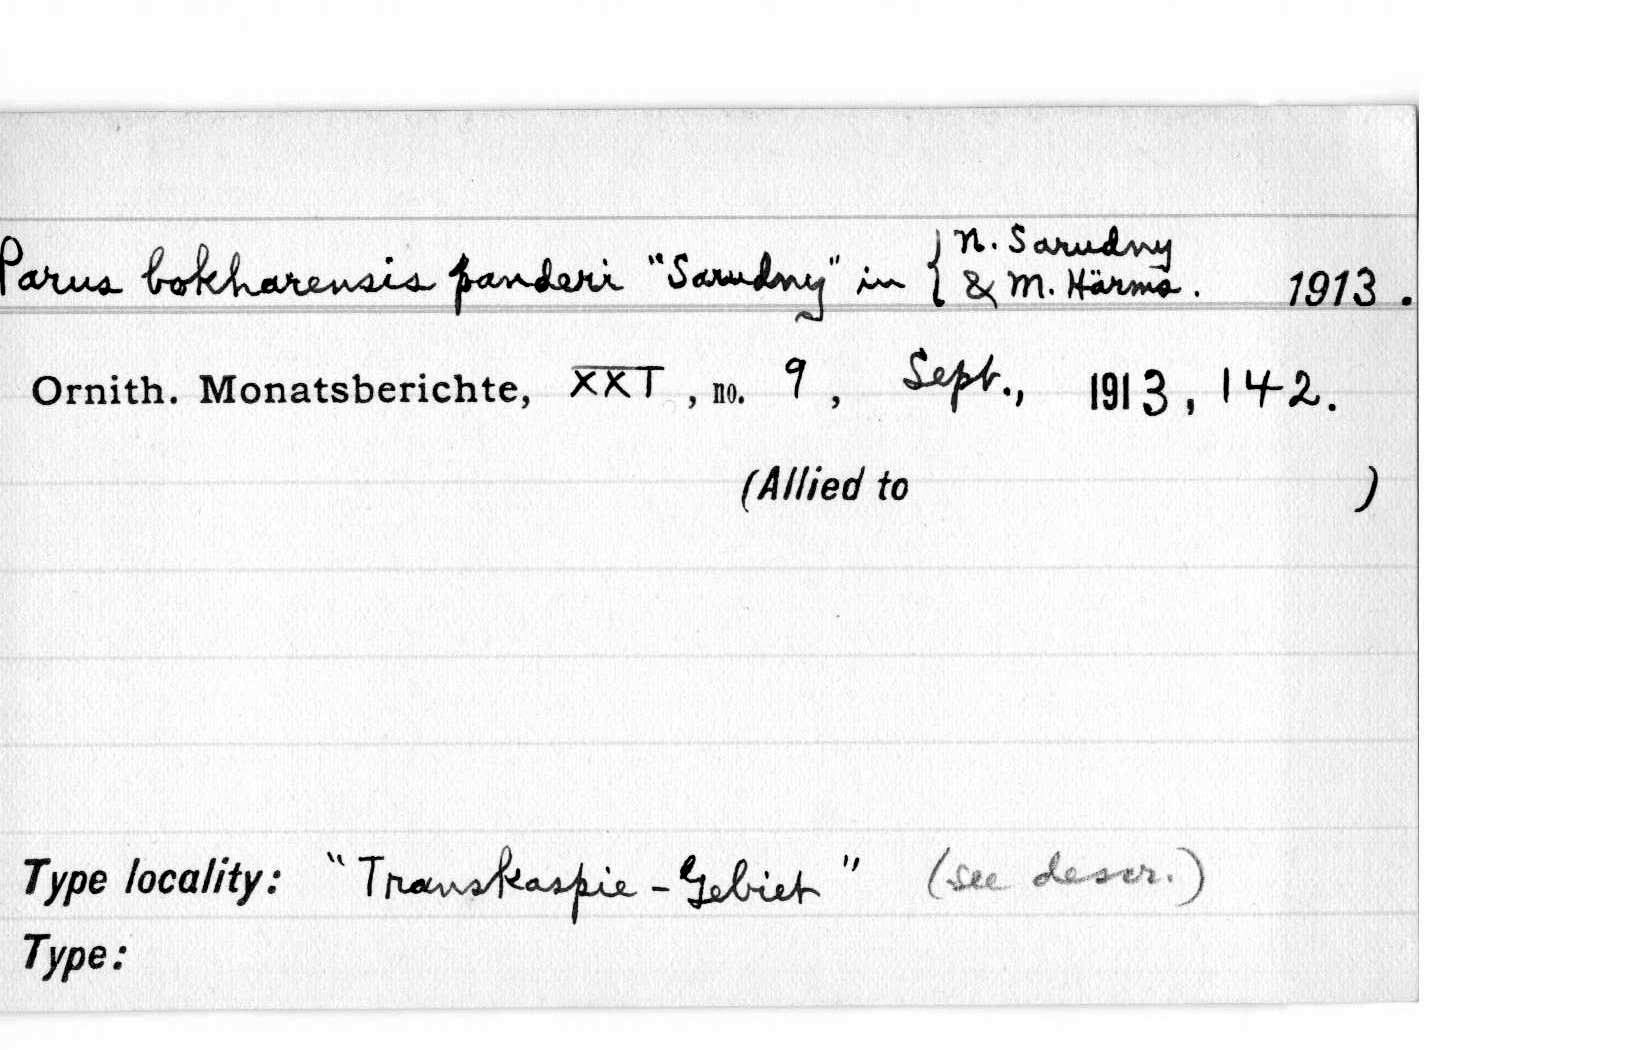 Parus bokharensis panderi "Sarudny" in { N. Sarudny
& M. Härms. 1913.
Ornith. Monatsberichte, XXI, no. 9, Sept., 1913, 142.
(Allied to )
Type locality: "Transkaspie-Gebiet" (see descr.)
Type: